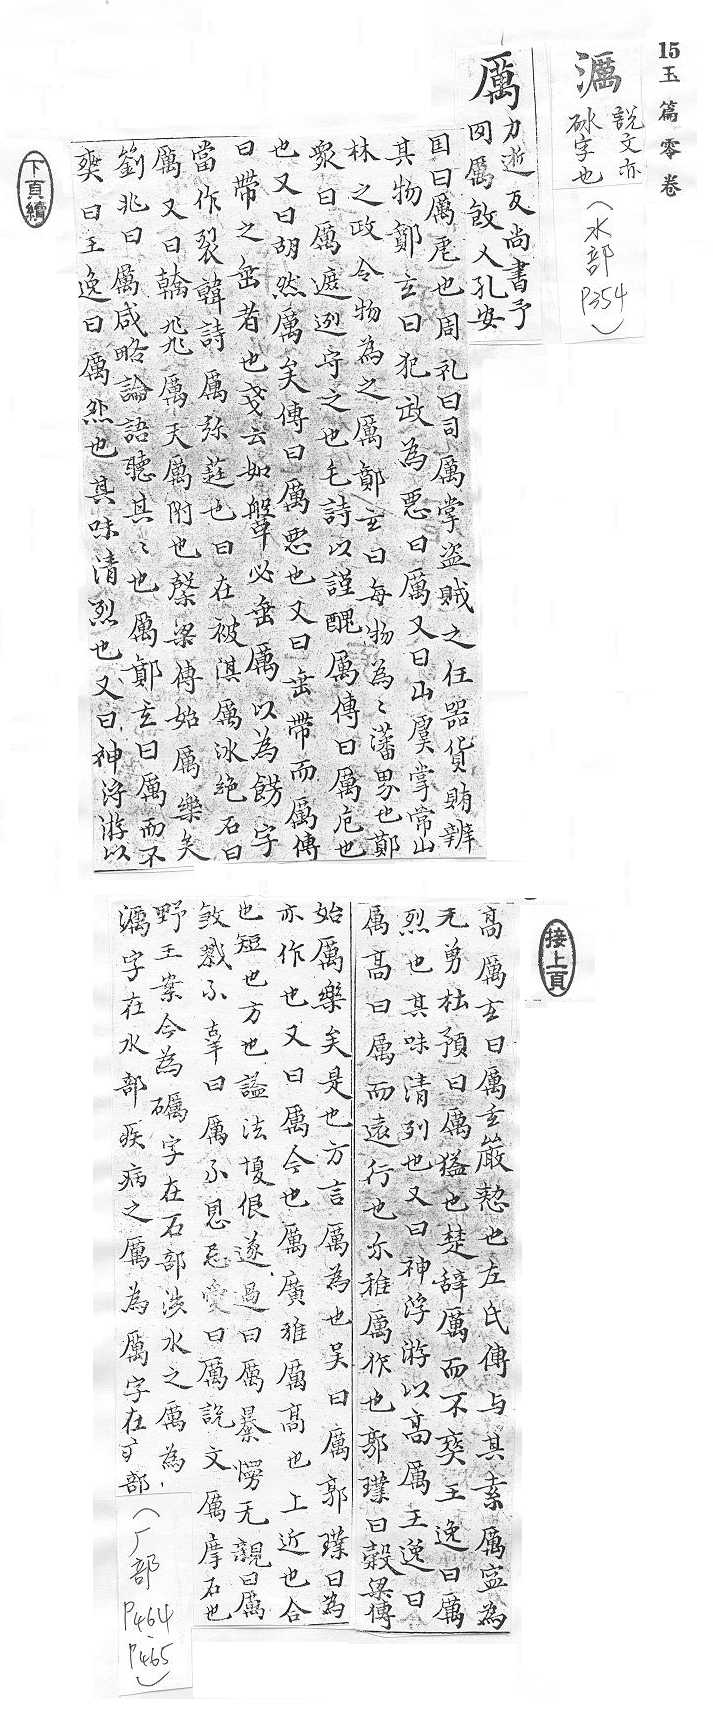 15玉篇零卷
濿
說文亦
砅字也
（水部P354）
厲
力逝反尚書予
罔厲敂人孔安
国曰厲虐也周礼曰司厲掌盗賊之任器貨賄辨
其物鄭玄曰犯政為悪曰厲又曰山虞掌常山
林之政令物為之厲鄭玄曰每物為〻藩界也鄭
衆曰厲遮迾守之也毛詩以謹醜厲傳曰厲危也
也又曰胡然厲矣傳曰厲悪也又曰垂帶而厲傳
曰帶之垂者也戔云如鞶革必垂厲以為餝字
當作裂韓詩厲弥莛也曰在被淇厲冰絶石曰
厲又曰翰飛厲天厲附也榖梁傳始厲樂矣
劉兆曰厲咸略論語聽其〻也厲鄭玄曰厲而不
爽曰王逸曰厲烈也其味清烈也又曰神浮游以
下頁續
接上頁
高厲玄曰厲玄嚴愸也左氏傳与其素厲寍為
无勇杜預曰厲猛也楚辞厲而不爽王逸曰厲
烈也其味清列也又曰神浮游以高厲王逸曰
厲高曰厲而遠行也尓雅厲作也郭璞曰榖梁傳
始厲樂矣是也方言厲為也吴曰厲郭璞曰為
亦作也又曰厲今也厲廣雅厲高也上近也合
也短也方也謚法愎佷遂過曰厲暴慢无親曰厲
煞戮不辜曰厲不思忌愛曰厲說文厲摩石也
野王案今為礪字在石部渉水之厲為
濿字在水部疾病之厲為厲字在疒部
（厂部P464、P465）